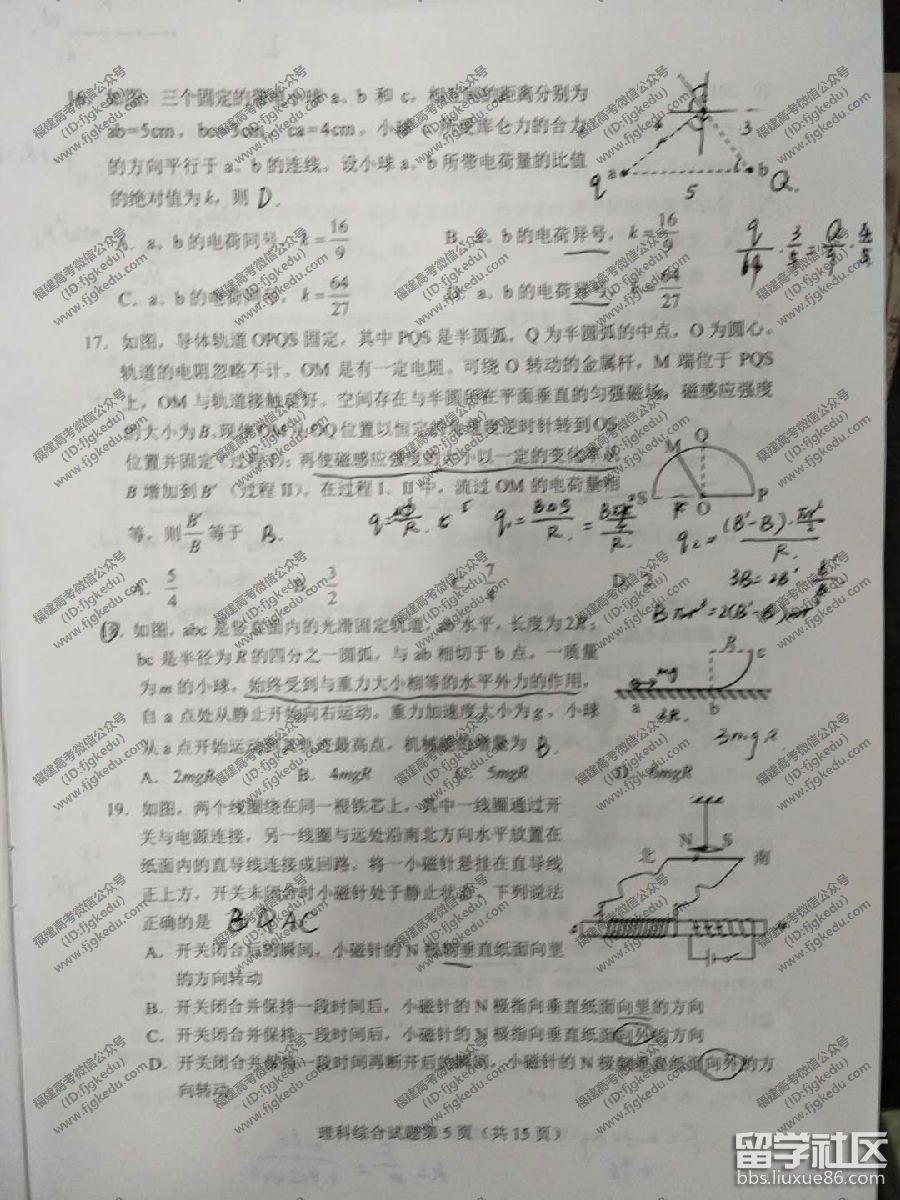 16. 如图，三个固定的带电小球 a、b 和 c，相互间的距离分别为
ab=5cm，bc=3cm，ca=4cm。小球 c 所受库仑力的合力
的方向平行于 a、b 的连线。设小球 a、b 所带电荷量的比值
的绝对值为 k，则 D.
4 3
a b
q 5 Q.
A. a、b 的电荷同号，k = 16/9
B. a、b 的电荷异号，k = 16/9
C. a、b 的电荷同号，k = 64/27
D. a、b 的电荷异号，k = 64/27
17. 如图，导体轨道 OPQS 固定，其中 PQS 是半圆弧，Q 为半圆弧的中点，O 为圆心。
轨道的电阻忽略不计。OM 是有一定电阻、可绕 O 转动的金属杆，M 端位于 PQS
上，OM 与轨道接触良好。空间存在与半圆所在平面垂直的匀强磁场，磁感应强度
的大小为 B. 现使 OM 从 OQ 位置以恒定的角速度逆时针转到 OS
位置并固定（过程 I）；再使磁感应强度的大小以一定的变化率从
B 增加到 B′（过程 II）。在过程 I、II 中，流过 OM 的电荷量相
等，则 B′/B 等于 B.
M Q
S O P
A. 5/4
B. 3/2
C. 7/4
D. 2
3B=2B′
18. 如图，abc 是竖直面内的光滑固定轨道，ab 水平，长度为 2R；
bc 是半径为 R 的四分之一圆弧，与 ab 相切于 b 点。一质量
为 m 的小球，始终受到与重力大小相等的水平外力的作用，
自 a 点处从静止开始向右运动。重力加速度大小为 g。小球
从 a 点开始运动到其轨迹最高点，机械能的增量为 B.
R c
mg
a b
2R.
3mgR
A. 2mgR
B. 4mgR
C. 5mgR
D. 6mgR
19. 如图，两个线圈绕在同一根铁芯上，其中一线圈通过开
关与电源连接，另一线圈与远处沿南北方向水平放置在
纸面内的直导线连接成回路。将一小磁针悬挂在直导线
正上方，开关未闭合时小磁针处于静止状态。下列说法
正确的是 B D AC
N S
北 南
A. 开关闭合后的瞬间，小磁针的 N 极朝垂直纸面向里
的方向转动
B. 开关闭合并保持一段时间后，小磁针的 N 极指向垂直纸面向里的方向
C. 开关闭合并保持一段时间后，小磁针的 N 极指向垂直纸面向外的方向
D. 开关闭合并保持一段时间再断开后的瞬间，小磁针的 N 极朝垂直纸面向外的方
向转动
理科综合试题第 5 页（共 15 页）
福建高考微信公众号
(ID:fjgkedu)
www.fjgkedu.com
留学社区
bbs.liuxue86.com